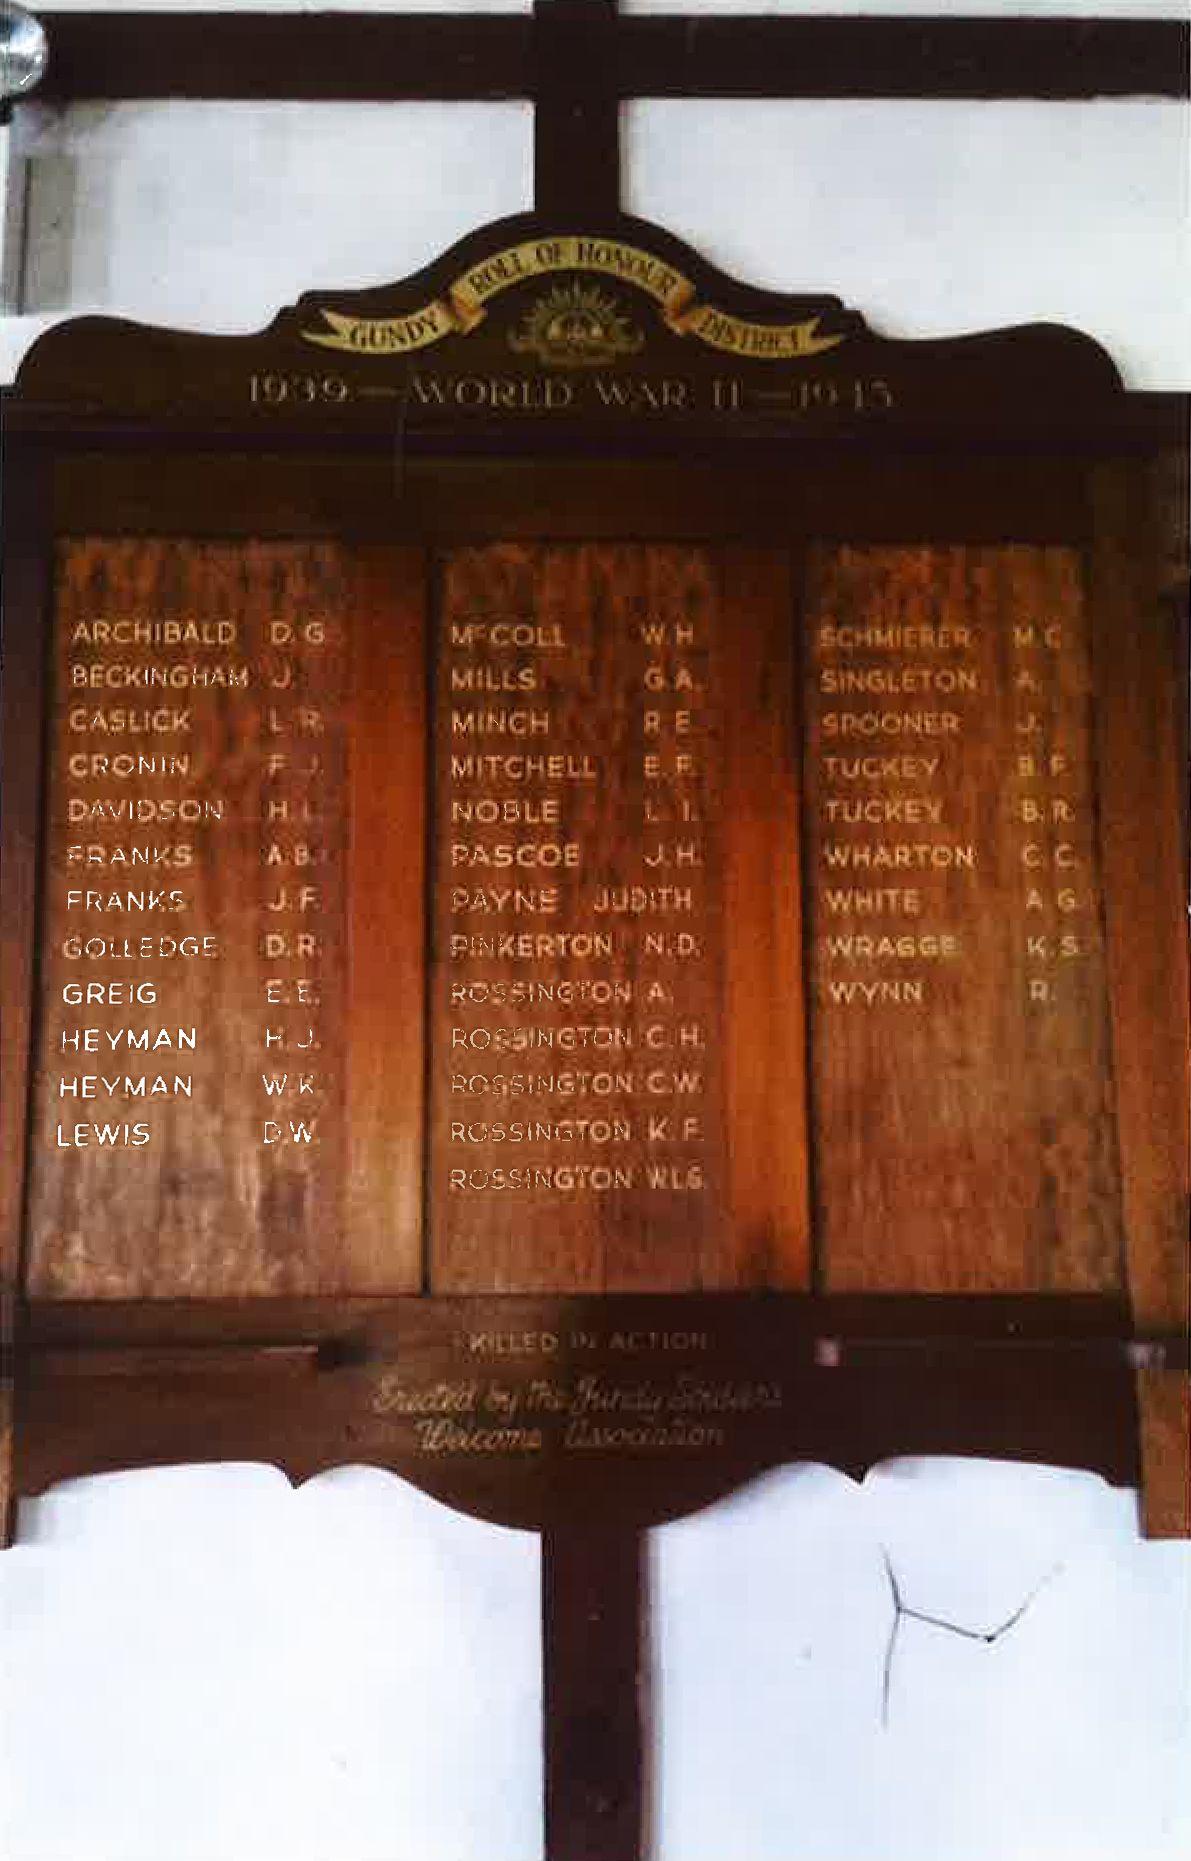 GUNDY ROLL OF HONOUR DISTRICT
1939 — WORLD WAR II — 1945
ARCHIBALD D.G.
BECKINGHAM J.
CASLICK L.R.
CRONIN F.J.
DAVIDSON H.
FRANKS A.B.
FRANKS J.F.
GOLLEDGE D.R.
GREIG E.E.
HEYMAN H.J.
HEYMAN W.K.
LEWIS D.W.
McCOLL W.H.
MILLS G.A.
MINCH R.E.
MITCHELL E.F.
NOBLE L.I.
PASCOE J.H.
PAYNE JUDITH
PINKERTON N.D.
ROSSINGTON A.
ROSSINGTON C.H.
ROSSINGTON C.W.
ROSSINGTON K.F.
ROSSINGTON W.L.S.
SCHMIERER M.C.
SINGLETON A.
SPOONER J.
TUCKEY B.F.
TUCKEY B.R.
WHARTON C.C.
WHITE A.G.
WRAGGE K.S.
WYNN R.
KILLED IN ACTION
Erected by the Gundy Soldiers
Welcome Association